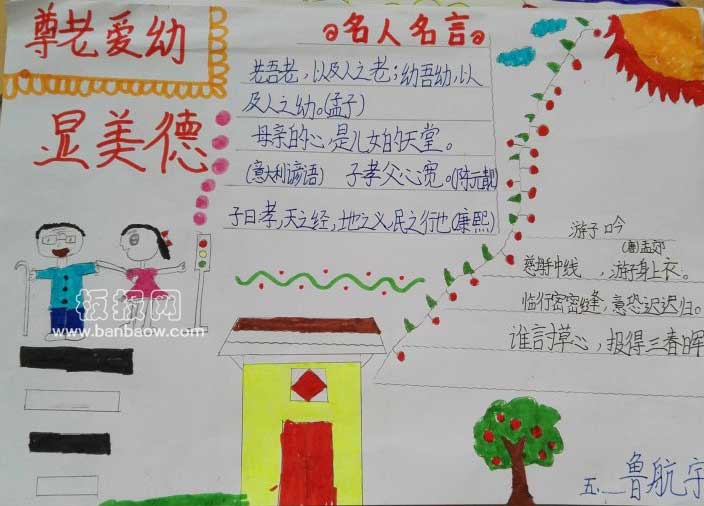 尊老爱幼
显美德
名人名言
老吾老,以及人之老;幼吾幼,以
及人之幼。(孟子)
母亲的心是儿女的天堂。
(意大利谚语) 子孝父心宽。(陈元靓)
子曰孝,天之经,地之义,民之行也(康熙)
游子吟
(唐)孟郊
慈母手中线 ,游子身上衣。
临行密密缝,意恐迟迟归。
谁言寸草心,报得三春晖
板报网
www.banbaow.com
五.一 鲁航宇